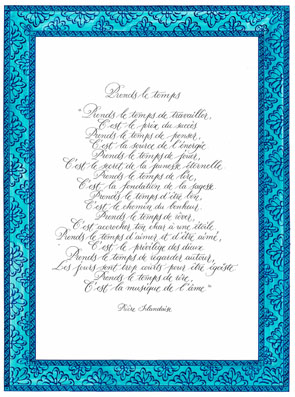 Prends le temps
"Prends le temps de travailler,
C'est le prix du succès
Prends le temps de penser,
C'est la source de l'énergie
Prends le temps de jouer,
C'est le secret de la jeunesse éternelle
Prends le temps de lire,
C'est la fondation de la sagesse
Prends le temps d'être bon,
C'est le chemin du bonheur
Prends le temps de rêver,
C'est accrocher ton char à une étoile
Prends le temps d'aimer et d'être aimé,
C'est le privilège des dieux
Prends le temps de regarder autour,
Les jours sont trop courts pour être égoïste
Prends le temps de rire,
C'est la musique de l'âme"